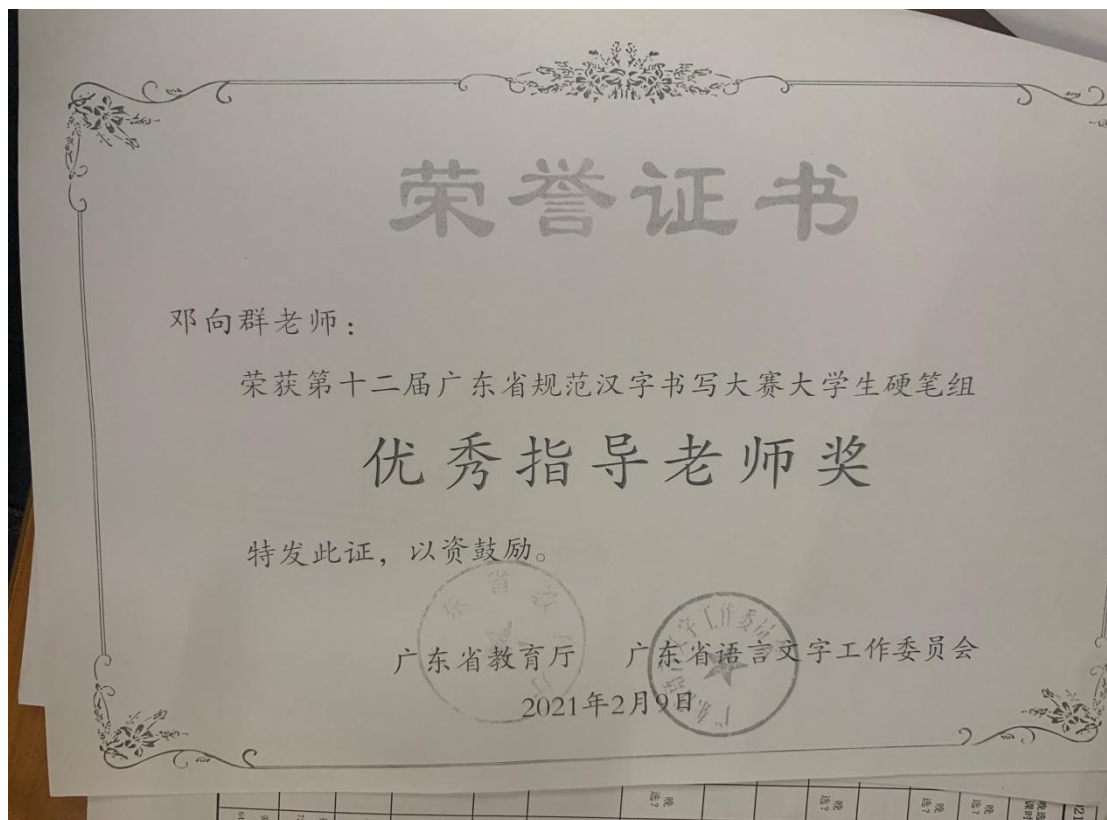 荣誉证书
邓向群老师：
荣获第十二届广东省规范汉字书写大赛大学生硬笔组
优秀指导老师奖
特发此证，以资鼓励。
广东省教育厅 广东省语言文字工作委员会
2021年2月9日